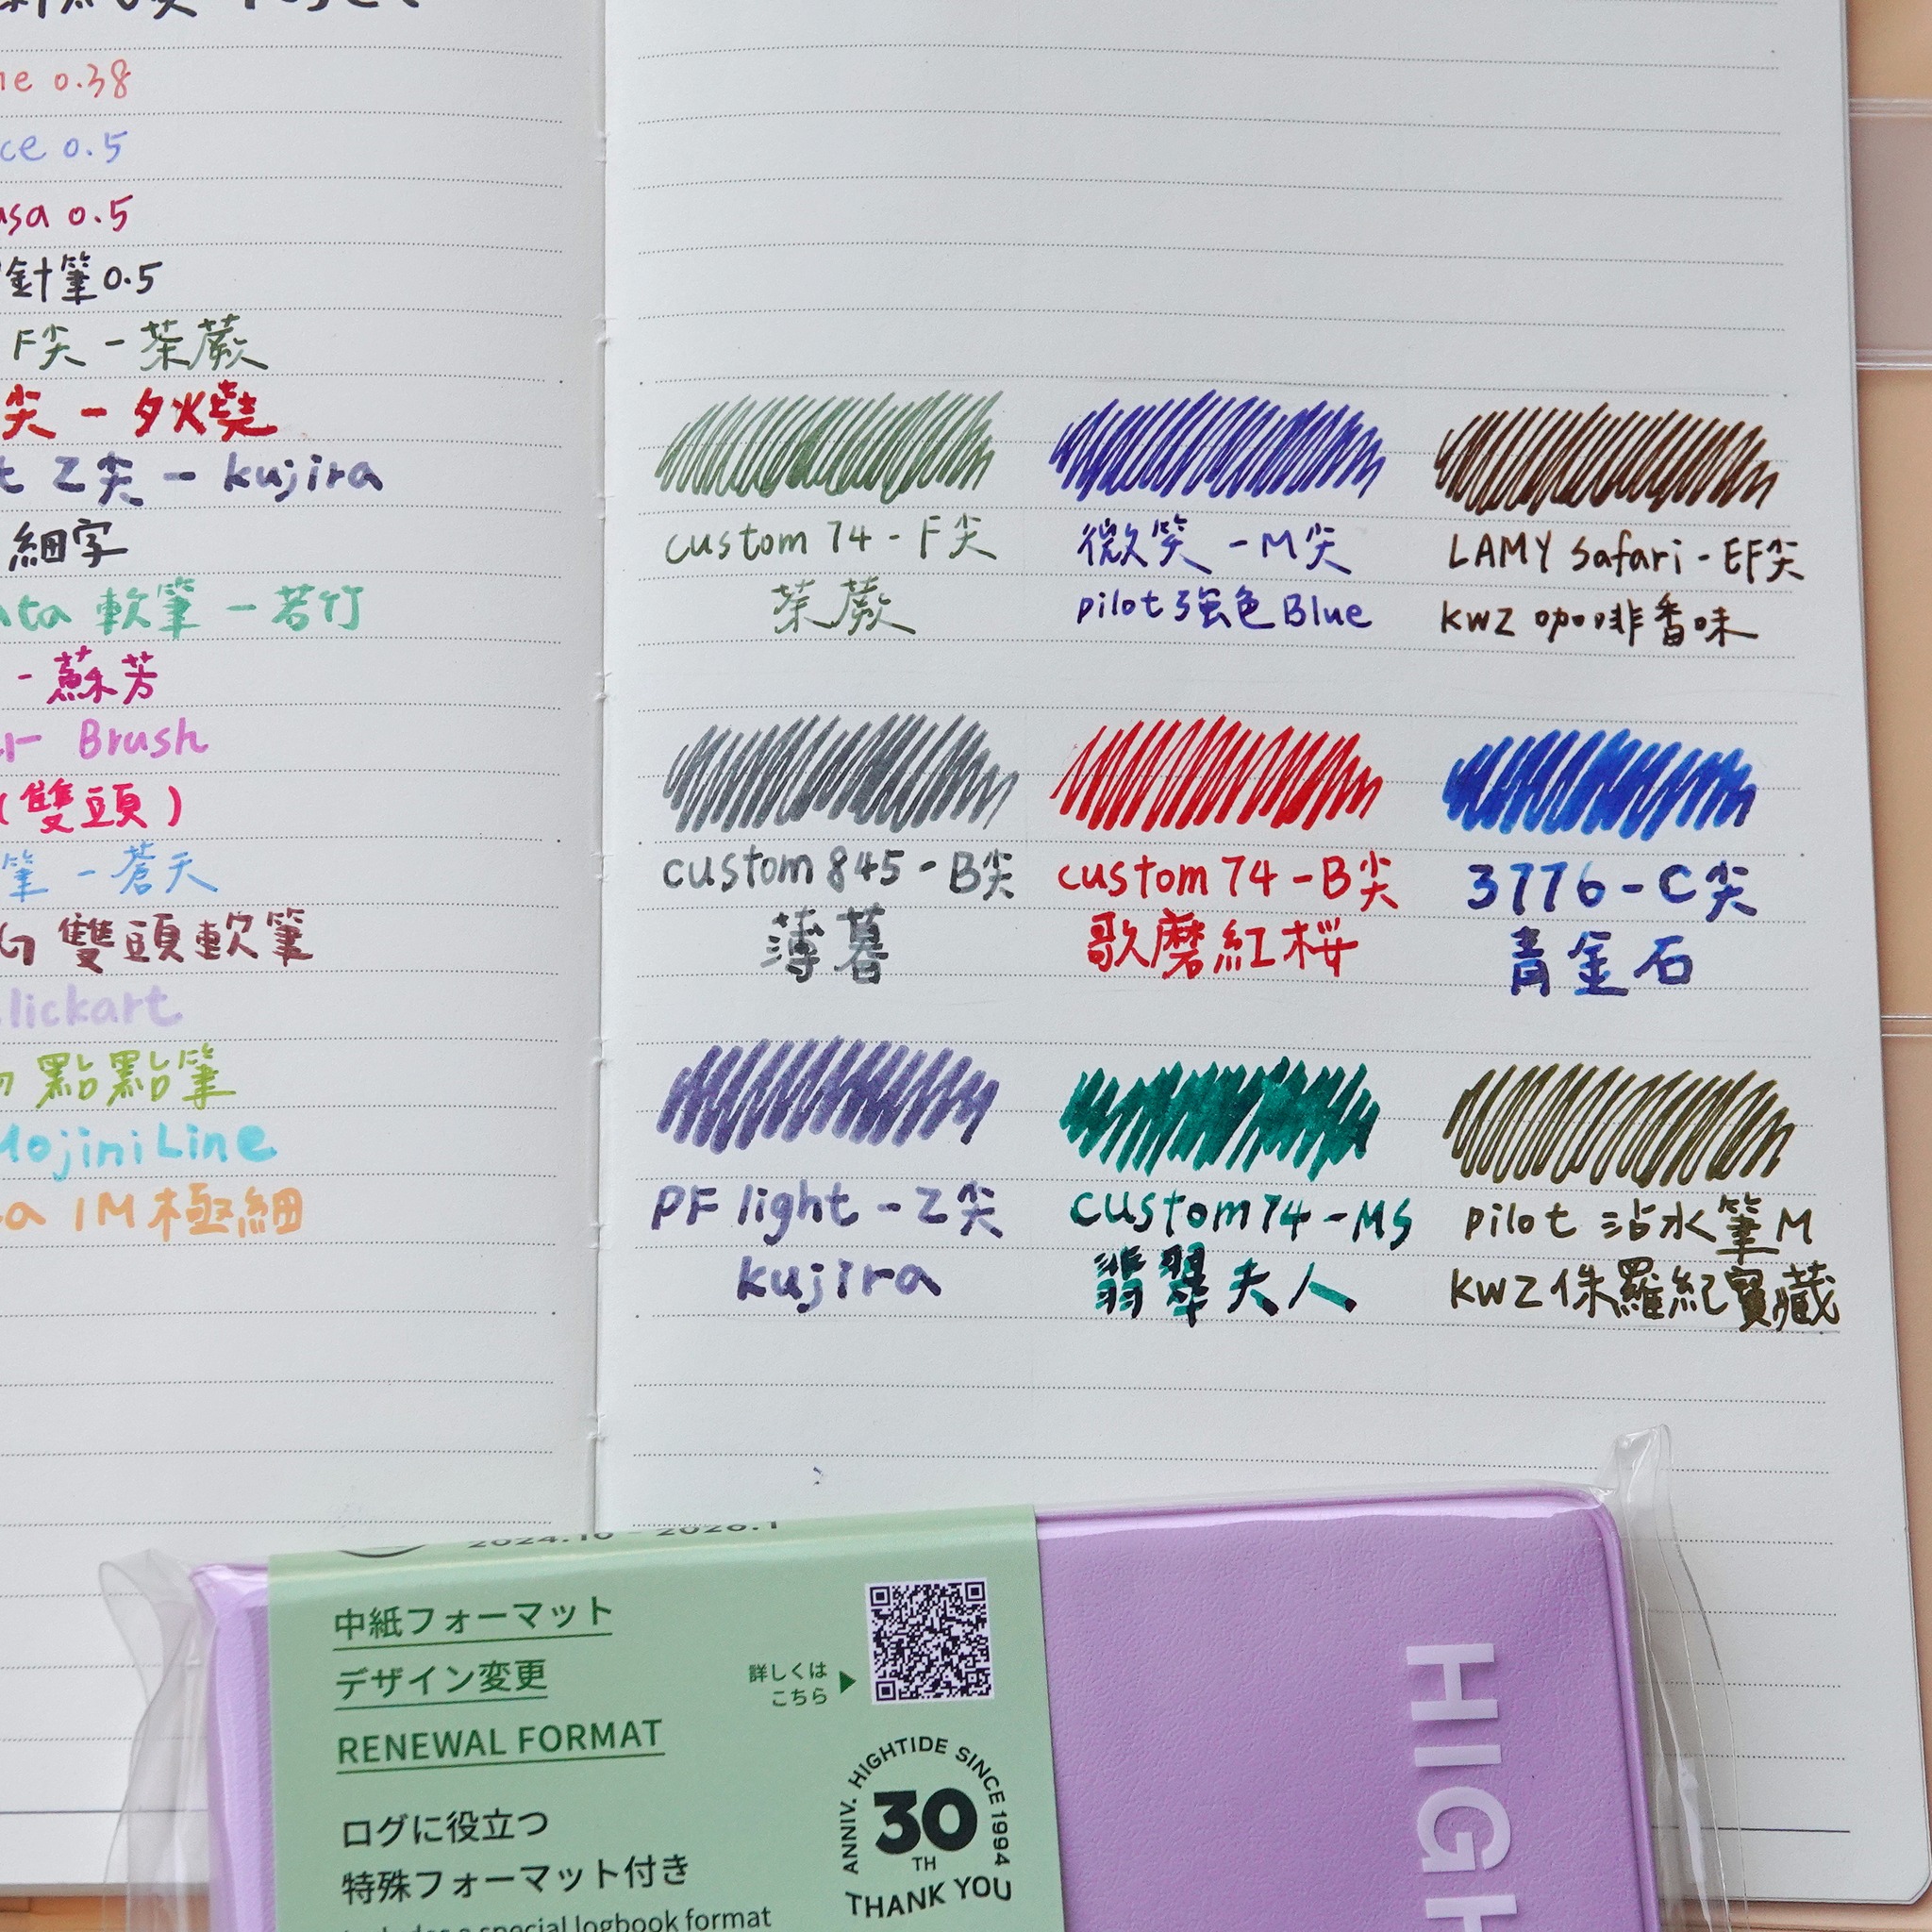 0.38
0.5
0.5
針筆0.5
F尖 - 茶蕨
尖 - 夕燒
Z尖 - kujira
細字
軟筆 - 若竹
- 蘇芳
Brush
(雙頭)
筆 - 蒼天
雙頭軟筆
點點筆
MojiniLine
1M極細
custom 74 - F尖
茶蕨
微笑 - M尖
pilot 強色Blue
LAMY Safari - EF尖
KWZ 咖啡香味
custom 845 - B尖
薄暮
custom 74 - B尖
歌麿紅桜
3776 - C尖
青金石
PF light - Z尖
kujira
custom74 - MS
翡翠夫人
pilot 沾水筆M
KWZ 侏羅紀寶藏
2024.10 - 2026.1
中紙フォーマット
デザイン変更
RENEWAL FORMAT
詳しくは
こちら
ログに役立つ
特殊フォーマット付き
special logbook format
ANNIV. HIGHTIDE SINCE 1994
30
TH
THANK YOU
HIGH